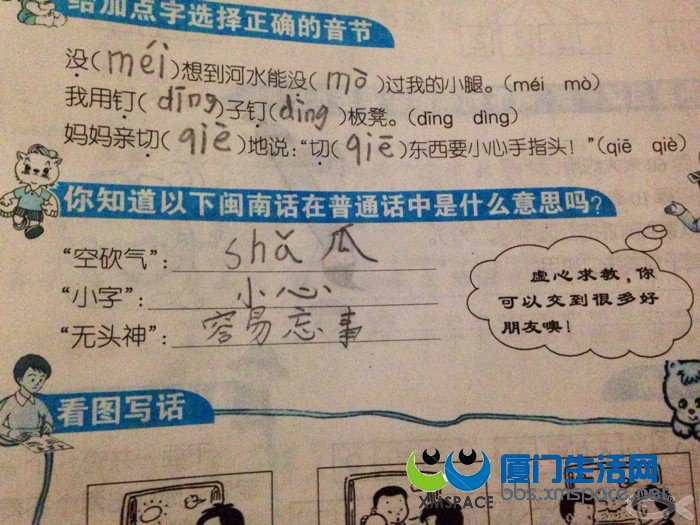 给加点字选择正确的音节
没(méi)想到河水能没(mò)过我的小腿。(méi mò)
我用钉(dīng)子钉(dìng)板凳。(dīng dìng)
妈妈亲切(qiē)地说：“切(qiē)东西要小心手指头！”(qiē qiè)
你知道以下闽南话在普通话中是什么意思吗？
“空砍气”：shǎ瓜
“小字”：小心
“无头神”：容易忘事
虚心求教，你
可以交到很多好
朋友噢！
看图写话
厦门生活网
XMSPACE bbs.xmspace.net